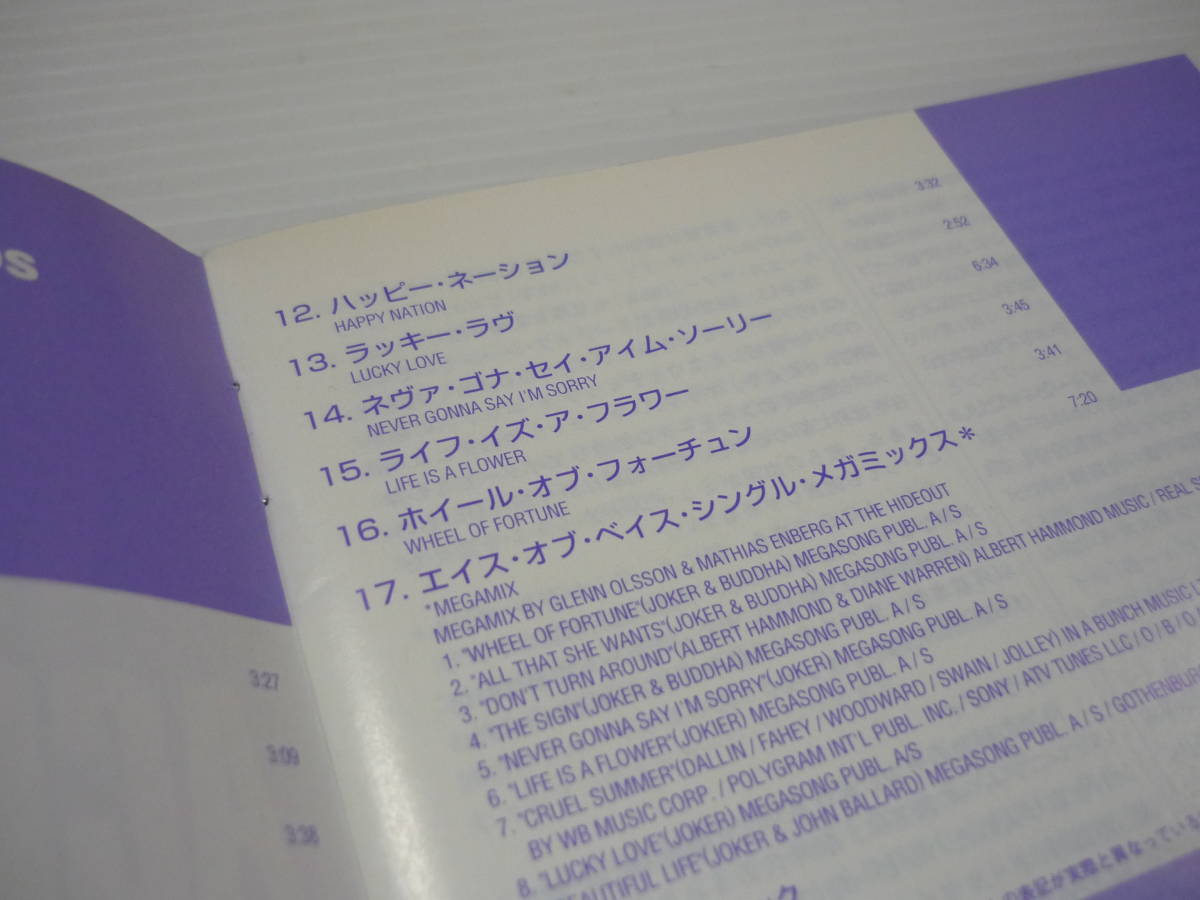 3:27
3:09
3:38
12. ハッピー・ネーション 3:32
HAPPY NATION
13. ラッキー・ラヴ 2:52
LUCKY LOVE
14. ネヴァ・ゴナ・セイ・アイム・ソーリー 6:34
NEVER GONNA SAY I'M SORRY
15. ライフ・イズ・ア・フラワー 3:45
LIFE IS A FLOWER
16. ホイール・オブ・フォーチュン 3:41
WHEEL OF FORTUNE
17. エイス・オブ・ベイス・シングル・メガミックス* 7:20
*MEGAMIX
MEGAMIX BY GLENN OLSSON & MATHIAS ENBERG AT THE HIDEOUT
1. "WHEEL OF FORTUNE"(JOKER & BUDDHA) MEGASONG PUBL. A / S
2. "ALL THAT SHE WANTS"(JOKER & BUDDHA) MEGASONG PUBL. A / S
3. "DON'T TURN AROUND"(ALBERT HAMMOND & DIANE WARREN) ALBERT HAMMOND MUSIC / REAL
4. "THE SIGN"(JOKER & BUDDHA) MEGASONG PUBL. A / S
5. "NEVER GONNA SAY I'M SORRY"(JOKER) MEGASONG PUBL. A / S
6. "LIFE IS A FLOWER"(JOKIER) MEGASONG PUBL. A / S
7. "CRUEL SUMMER"(DALLIN / FAHEY / WOODWARD / SWAIN / JOLLEY) IN A BUNCH MUSIC
BY WB MUSIC CORP. / POLYGRAM INT'L PUBL. INC. / SONY / ATV TUNES LLC / O / B / O
8. "LUCKY LOVE"(JOKER) MEGASONG PUBL. A/S
BEAUTIFUL LIFE"(JOKER & JOHN BALLARD) MEGASONG PUBL. A / S / GOTHENBURG
の表記が実際と異なっている